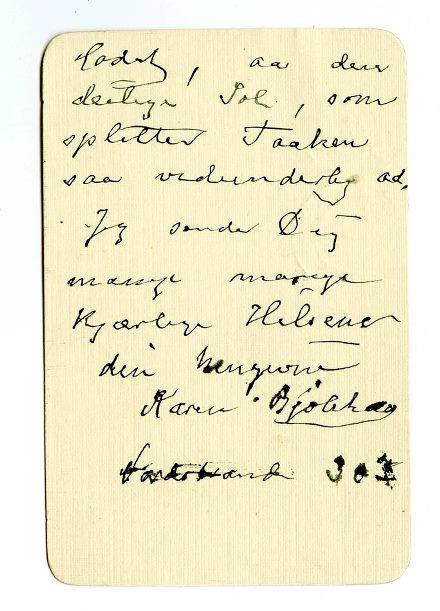 , aa den
deilige Sol, som
splitter Taaken
saa vidunderlig ad,
Jeg sender Dig
mange mange
Kjærlige Hilsener
din hengivne
Karen
303